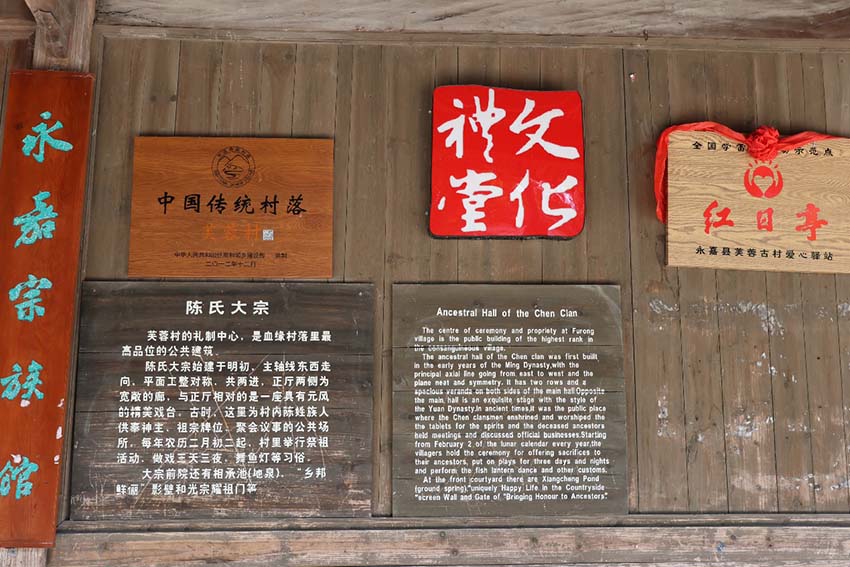 永嘉宗族馆
中国传统村落
中华人民共和国住房和城乡建设部
二〇一二年十二月
文化
禮堂
全国学雷
示亮点
红日亭
永嘉县芙蓉古村爱心驿站
陈氏大宗
芙蓉村的礼制中心，是血缘村落里最
高品位的公共建筑。
陈氏大宗始建于明初，主轴线东西走
向，平面工整对称，共两进，正厅两侧为
宽敞的廊，与正厅相对的是一座具有元风
的精美戏台。古时，这里为村内陈姓族人
供奉神主、祖宗牌位，聚会议事的公共场
所，每年农历二月初二起，村里举行祭祖
活动，做戏三天三夜，舞鱼灯等习俗。
大宗前院还有相承池(地泉)、“乡邦
鲜俪”影壁和光宗耀祖门等
Ancestral Hall of the Chen Clan
The centre of ceremony and propriety at Furong
village is the public building of the highest rank in
the consanguineous village.
The ancestral hall of the Chen clan was first built
in the early years of the Ming Dynasty,with the
principal axial line going from east to west and the
plane neat and symmetry. It has two rows and a
spacious veranda on both sides of the main hall.Opposite
the main, hall is an exquisite stage with the style of
the Yuan Dynasty.In ancient times,it was the public place
where the Chen clansmen enshrined and worshiped the
the tablets for the spirits and the deceased ancestors
held meetings and discussed official businesses.Starting
from February 2 of the lunar calendar every year,the
villagers hold the ceremony for offering sacrifices to
their ancestors, put on plays for three days and nights
and perform the fish lantern dance and other customs.
At the front courtyard there are Xiangcheng Pond
(ground spring),"uniquely Happy Life in the Countryside
"ecreen Wall and Gate of "Bringing Honour to Ancestors".